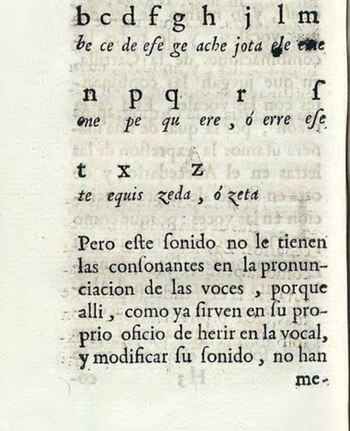 b c d f g h j l m
be ce de efe ge ache jota ele eme
n p q r ſ
ene pe qu ere, ó erre eſe
t x z
te equis zeda, ó zeta
Pero eſte ſonido no le tienen
las conſonantes en la pronun-
ciacion de las voces, porque
alli, como ya ſirven en ſu pro-
prio oficio de herir en la vocal,
y modificar ſu ſonido, no han
me-